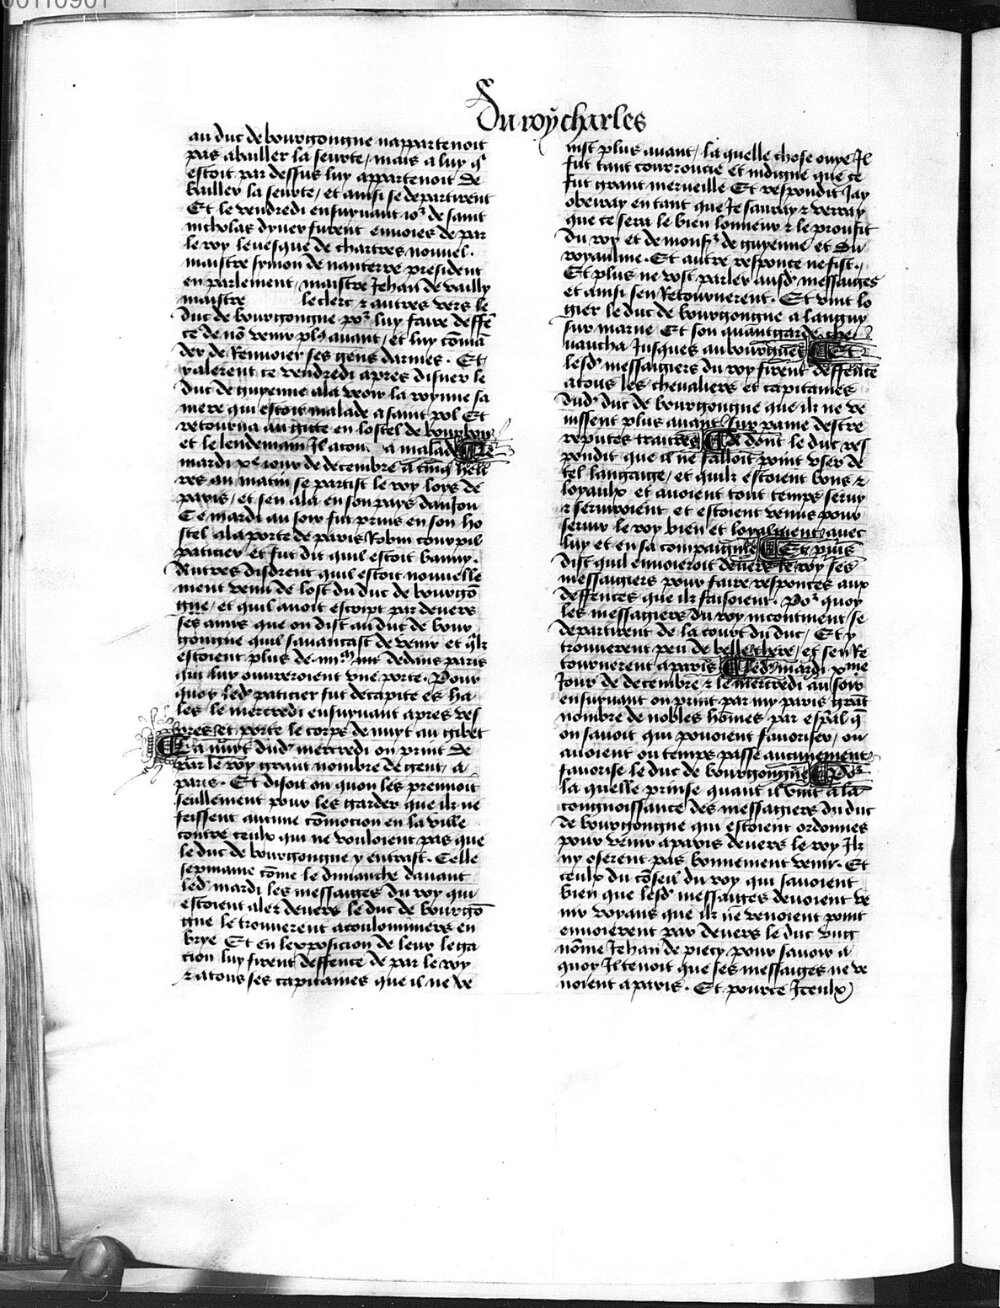 Du roy charles
au duc de bourgongne nappartenoit
pas abailler la seurte / mais a luy qͥ
estoit par dessus luy appartenoit de
bailler la seurte / et ainsi se departirent
Et le vendredi ensuyuant ioʳ de saint
nicholas dyuer furent enuoies de par
le roy leuesque de chartres nouuel .
maistre symon de nanterre president
en parlement / maistre Jehan de vailly
maistre leclerc et autres vers le
duc de bourgongne poʳ luy faire deffē
ce de nō venir plꝰ auant / et luy cōmā
der de Renuoier ses gens darmes . Et
yalerent ce vendredi apres disner le
duc de guyenne ala veoir la royne sa
mere qui estoit malade a saint pol Et
retourna au giste en lostel de bourbon
et le lendemain Il acou a malad Le
mardi jour de decembre a cinq heu
res au matin se partist le roy loys de
paris / et sen ala en son pays daniou
Ce mardi au soir fut prins en son ho
stel ala porte de paris Robin courpil
paticier et fut dit quil estoit banny .
Autres disdrent quil estoit nouuelle
ment venu de lost du duc de bourgō
gne / et quil auoit escript par deuers
ses amis que on dist au duc de bour
gongne quil sauancast de venir et qͥlz
estoient plus de dedans paris
qui luy ouureroient vne porte . Pour
quoy ledͭ paticier fut decapite es ha
les le mercredi ensuyuant apres ves
pres et porte le corps de nuyt au gibet
La nuyt dudͭ mercredi on print de
par le roy grant nombre de gent / a
paris . Et disoit on quon les prenoit
seullement pour les garder que ilz ne
feissent aucune cōmocion en la ville
contre ceulx qui ne vouloient pas que
le duc de bourgongne y entrast . Celle
sepmaine cōme le dimanche dauant
ledͭ mardi les messaiges du roy qui
estoient alez deuers le duc de bourgō
gne le trouuerent acoulommiers en
brye Et en lexposicion de leur lega
cion luy firent deffence de par le roy
et atous ses capitaines que il ne ve
nist plus auant / la quelle chose ouye Il
fut tant courroucie et indigne que ce
fut grant merueille Et respondit Jay
obeiray en tant que Je sauray et verray
que ce sera le bien lonneur et le prouffit
du roy et de monsʳ de guyenne et du
royaulme . Et autre responce ne fist .
Et plus ne vost parler ausdͭ messaiges
et ainsi sen Retournerent . Et vint lo
gier le duc de bourgongne a languy
sur marne Et son auantgarde che
uaucha Jusques au bourguet Et
lesdͭ messaigiers du roy firent deffence
atous les cheualiers et capitaines
dudͭ duc de bourgongne que ilz ne ve
nissent plus auant sur paine destre
reputes traitres Et dont le duc res
pondit que il ne failloit point vser de
tel langaige / et quilz estoient bons et
loyaulx et auoient tout temps seruy
et seruiroient et estoient venus pour
seruir le roy bien et loyalment auec
luy et en sa compaignie Et puis
dist quil enuoieroit deuers le roy ses
messaigiers pour faire responces aux
deffences que ilz faisoient . Poʳ quoy
les messagiers du roy incontinent se
departirent de la court du duc / Et y
trouuerent peu de belle chere / et sen Re
tournerent aparis Ledͭ mardi
Jour de decembre et le mercredi au soir
ensuyuant on print par my paris grāt
nombre de nobles hōmes par espāl qͥ
on sauoit qui pouoient fauoriser / ou
auoient ou temps passe aucunement
fauorise le duc de bourgongne Poʳ
la quelle prinse quant il vint a la
congnoissance des messagiers du duc
de bourgongne qui estoient ordonnes
pour venir aparis deuers le roy Ilz
ny oserent pas bonnement venir . Et
ceulx du cōseil du roy qui sauoient
bien que lesdͭ messaiges deuoient ve
nir voyans que ilz ne venoient point
enuoierent par deuers le duc vng
nōme Jehan de piecy pour sauoir a
quoy Il tenoit que ses messaiges ne ve
noient aparis . Et pource Iceulx